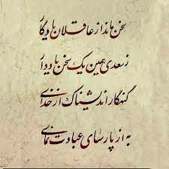 سخن ماند از عاقلان یادگار
ز سعدی همین یک سخن یاد دار
گنهکار اندیشناک از خدای
به از پارسای عبادت نمای